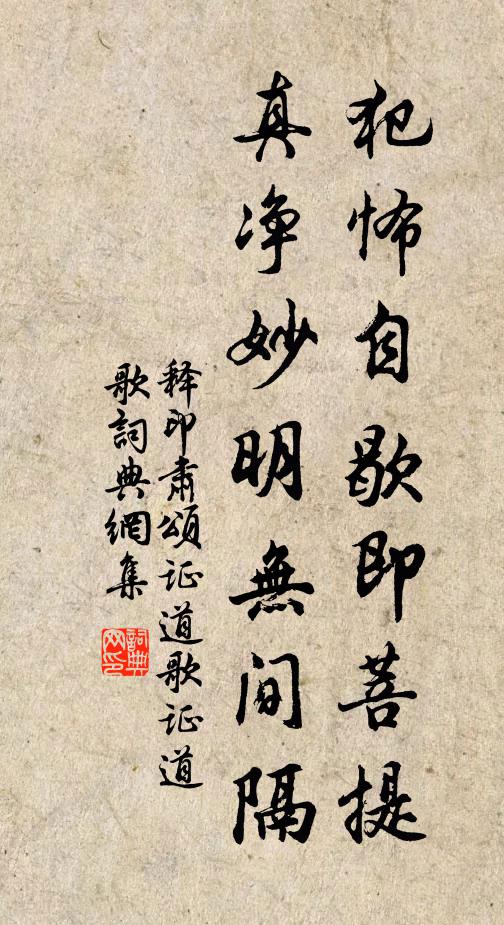 犯怖自歇即菩提
真净妙明無间隔
释印肃颂证道歌证道
歌詞典網集
詞典
网印